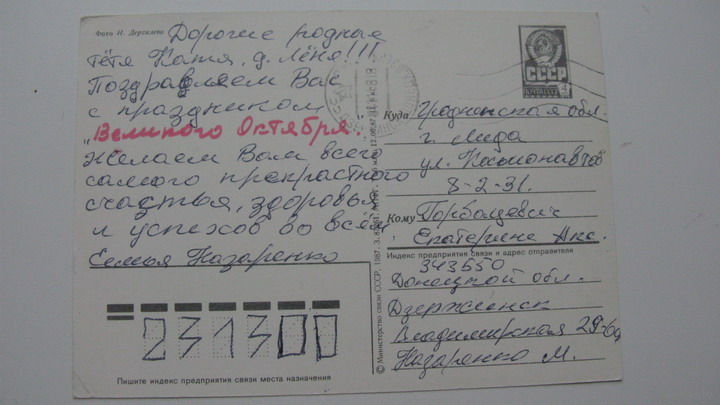 Фото И. Дергилева
Дорогие родные
тётя Катя, д. Лёня!!!
Поздравляем Вас
с праздником
"Великого Октября".
Желаем Вам всего
самого прекрастного
счастья, здоровья
и успехов во всём
Семья Назаренко
СССР
4
Куда Гродненская обл.
г. Лида
ул. Космонавтов
8-2-31.
Кому Горбацевич
Екатерине Акс.
Индекс предприятия связи и адрес отправителя
343550
Донецкой обл.
Дзержинск
Владимирская 29-60
Назаренко М.
231300
Пишите индекс предприятия связи места назначения
© Министерство связи СССР, 1987.